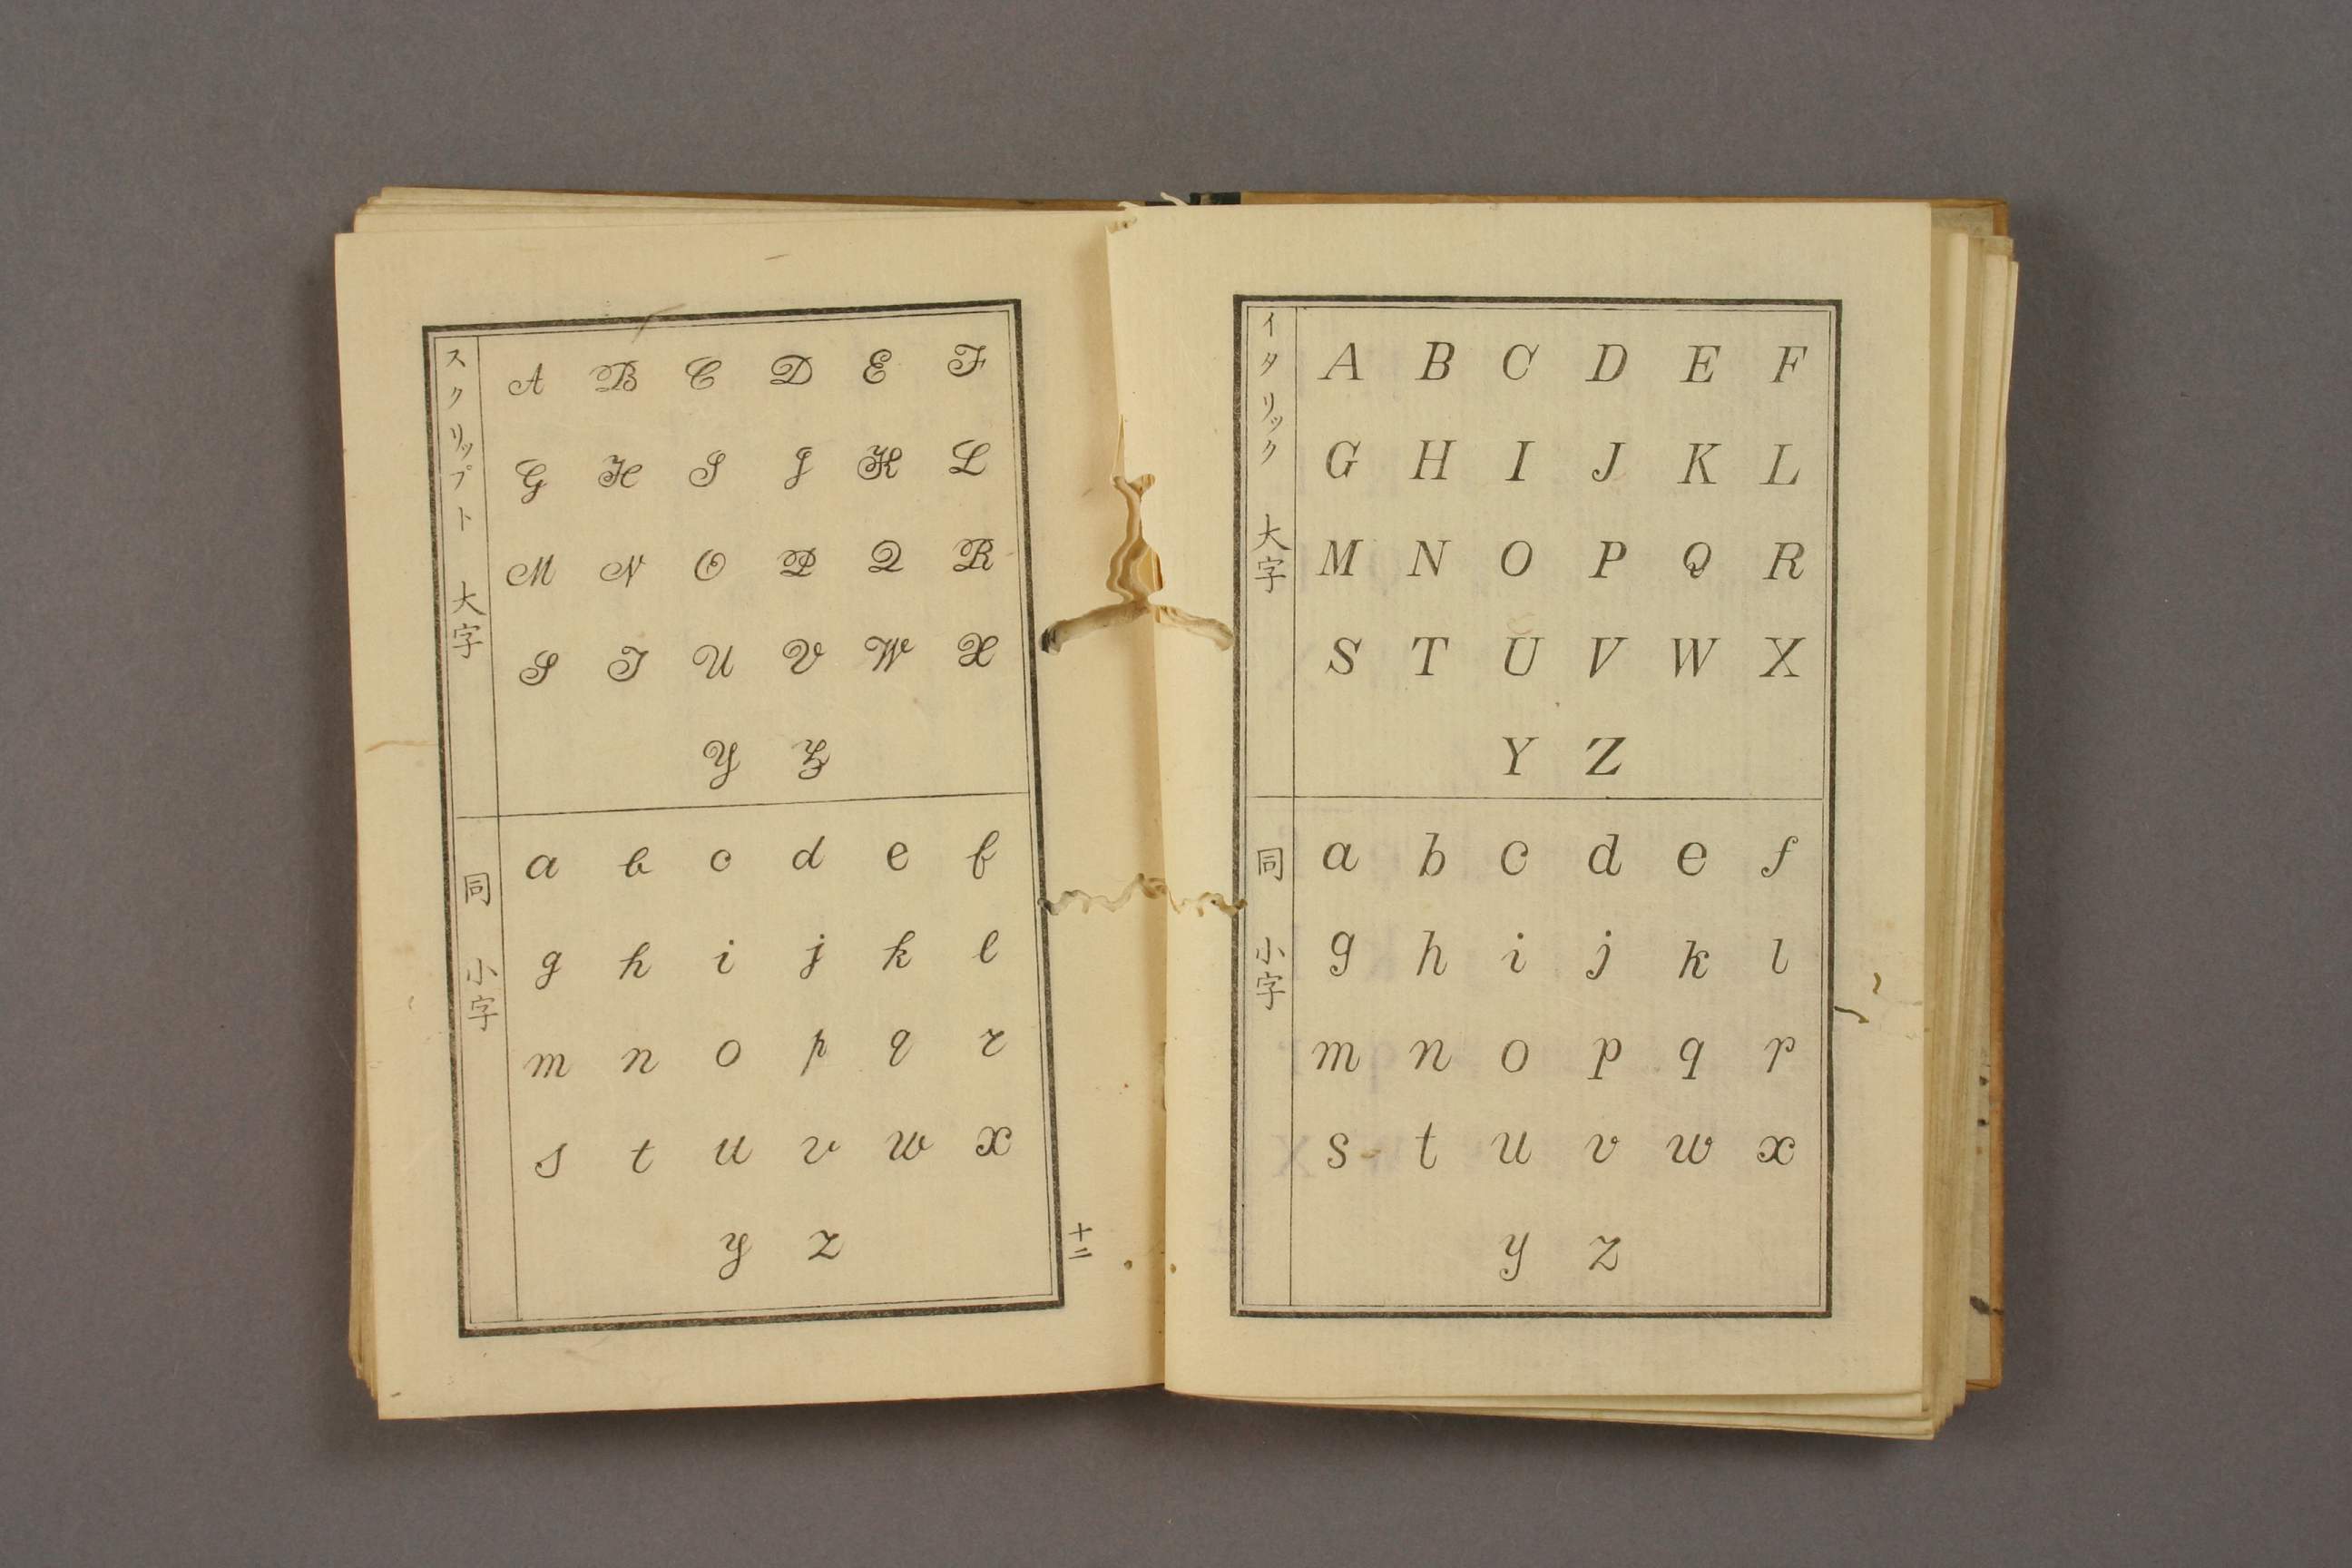 イタリック 大字
A B C D E F
G H I J K L
M N O P Q R
S T U V W X
Y Z
同 小字
a b c d e f
g h i j k l
m n o p q r
s t u v w x
y z
スクリップト 大字
A B C D E F
G H I J K L
M N O P Q R
S T U V W X
Y Z
同 小字
a b c d e f
g h i j k l
m n o p q r
s t u v w x
y z
十二